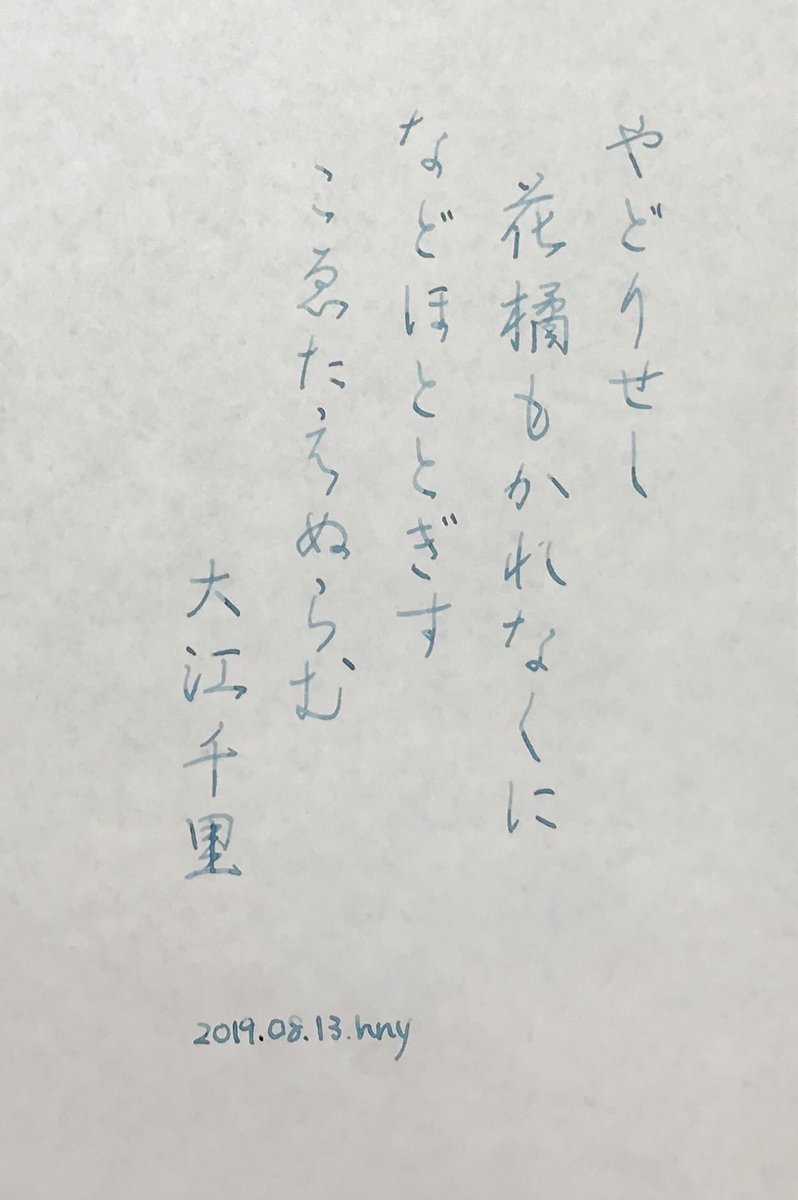 やどりせし
花橘もかれなくに
などほととぎす
こゑたえぬらむ
大江千里
2019.08.13.hny